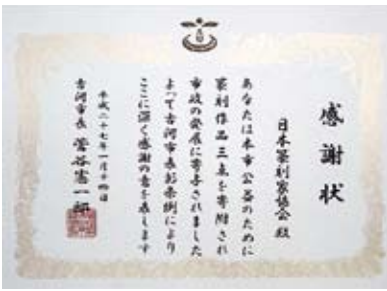 感謝状
日本篆刻家協会 殿
あなたは本市公益のために
篆刻作品三点を寄附され
市政の発展に寄与されました
よって古河市表彰条例により
ここに深く感謝の意を表します
平成二十七年一月十四日
古河市長 菅谷憲一郎